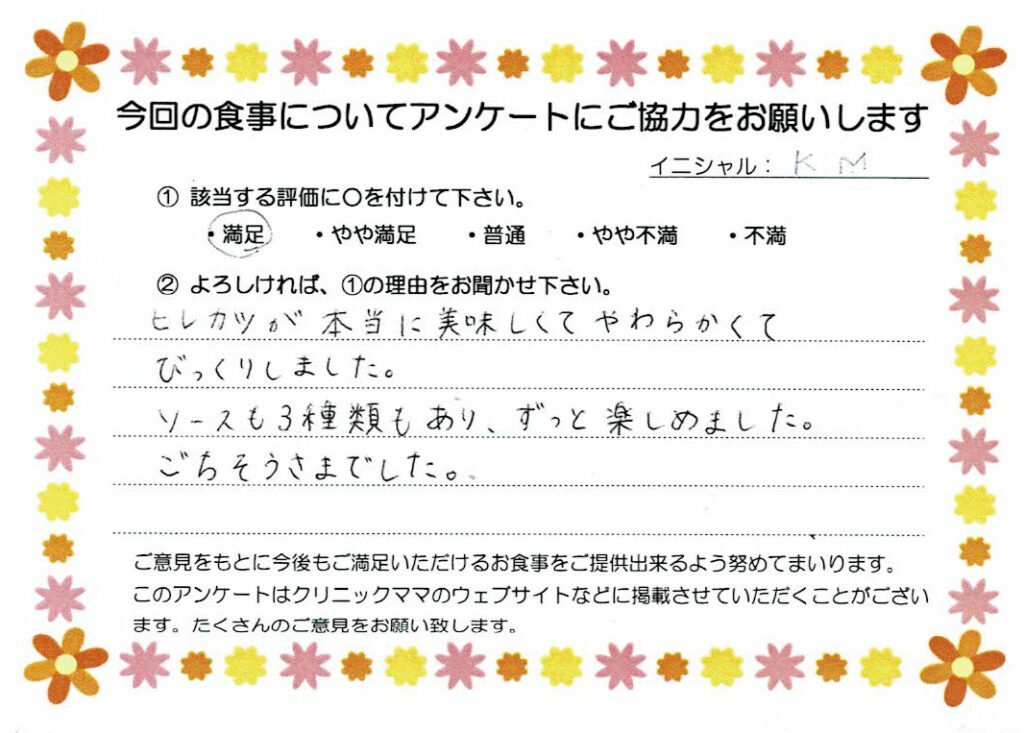 今回の食事についてアンケートにご協力をお願いします
イニシャル： K M
① 該当する評価に〇を付けて下さい。
・満足 ・やや満足 ・普通 ・やや不満 ・不満
② よろしければ、①の理由をお聞かせ下さい。
ヒレカツが本当に美味しくてやわらかくて
びっくりしました。
ソースも3種類もあり、ずっと楽しめました。
ごちそうさまでした。
ご意見をもとに今後もご満足いただけるお食事をご提供出来るよう努めてまいります。
このアンケートはクリニックママのウェブサイトなどに掲載させていただくことがござい
ます。たくさんのご意見をお願い致します。